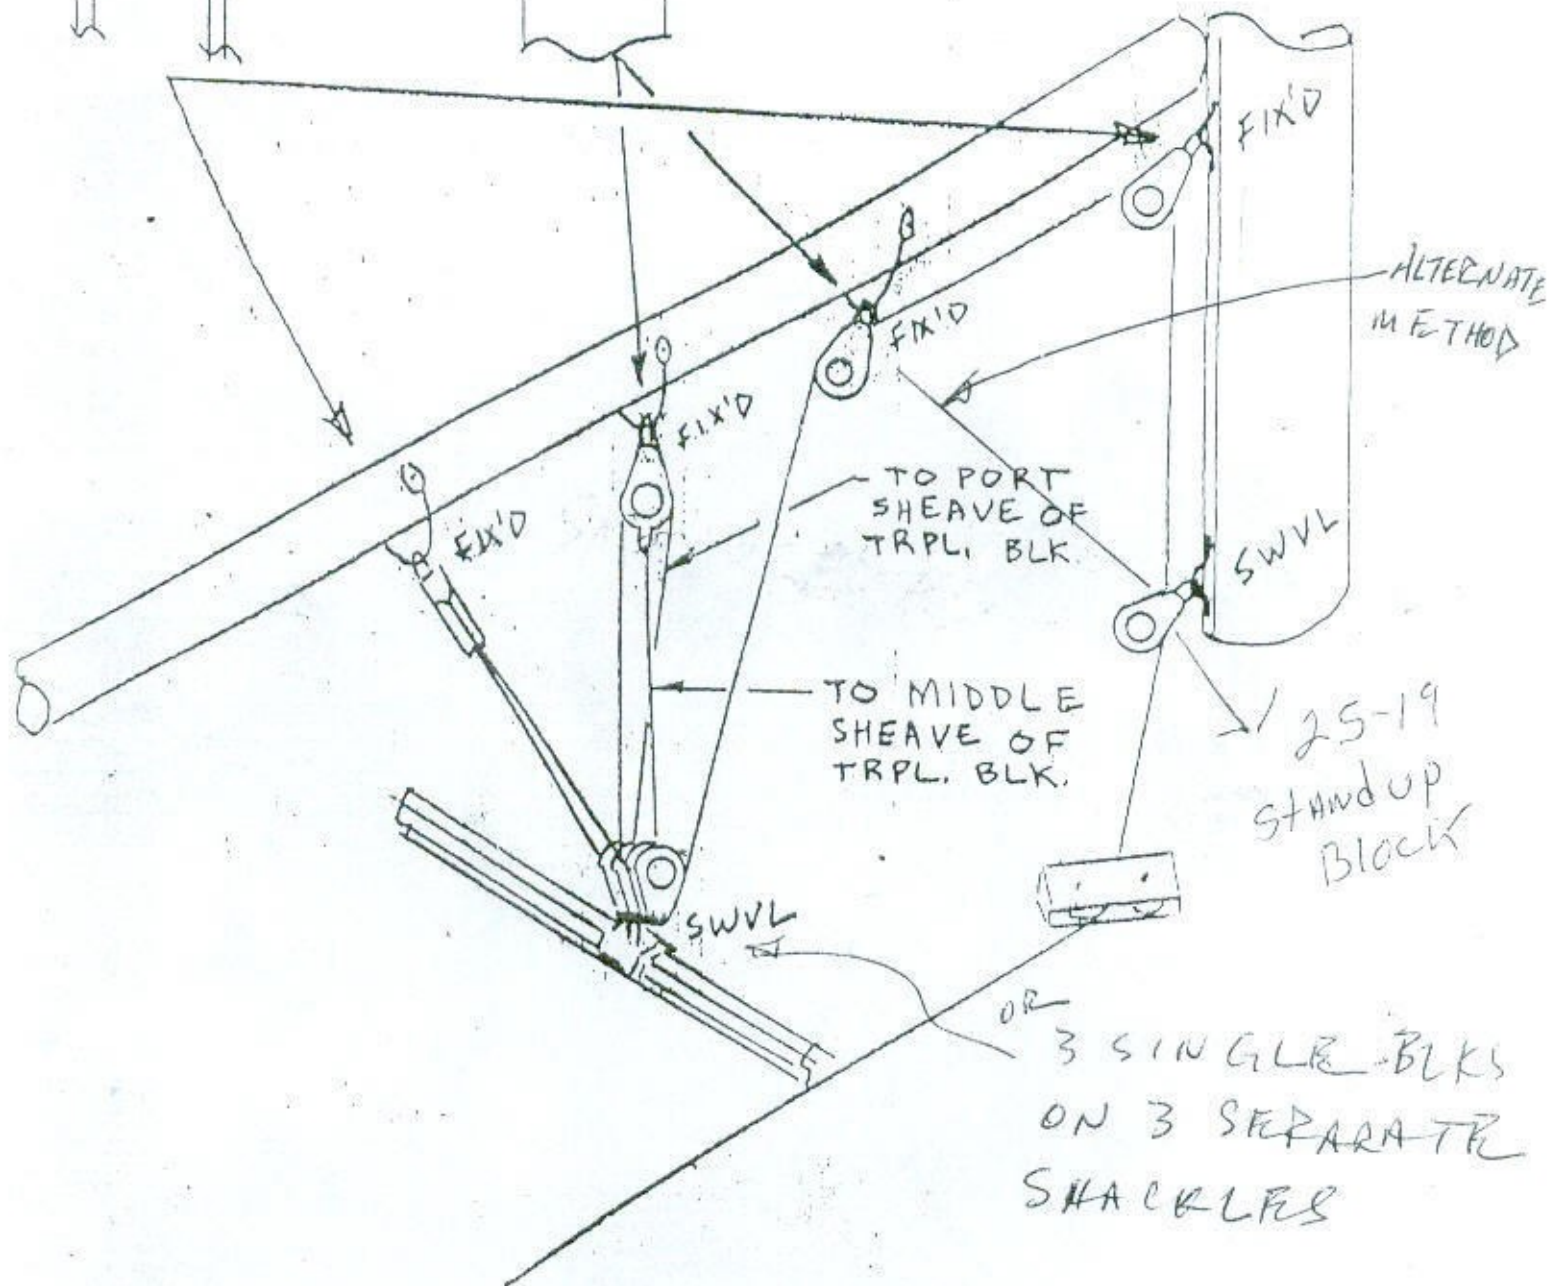 FIX'D
ALTERNATE
METHOD
FIX'D
FIX'D
TO PORT
SHEAVE OF
TRPL. BLK.
FIX'D
SWVL
TO MIDDLE
SHEAVE OF
TRPL. BLK.
25-19
Standup
Block
SWVL
OR
3 SINGLE BLKS
ON 3 SEPARATE
SHACKLES